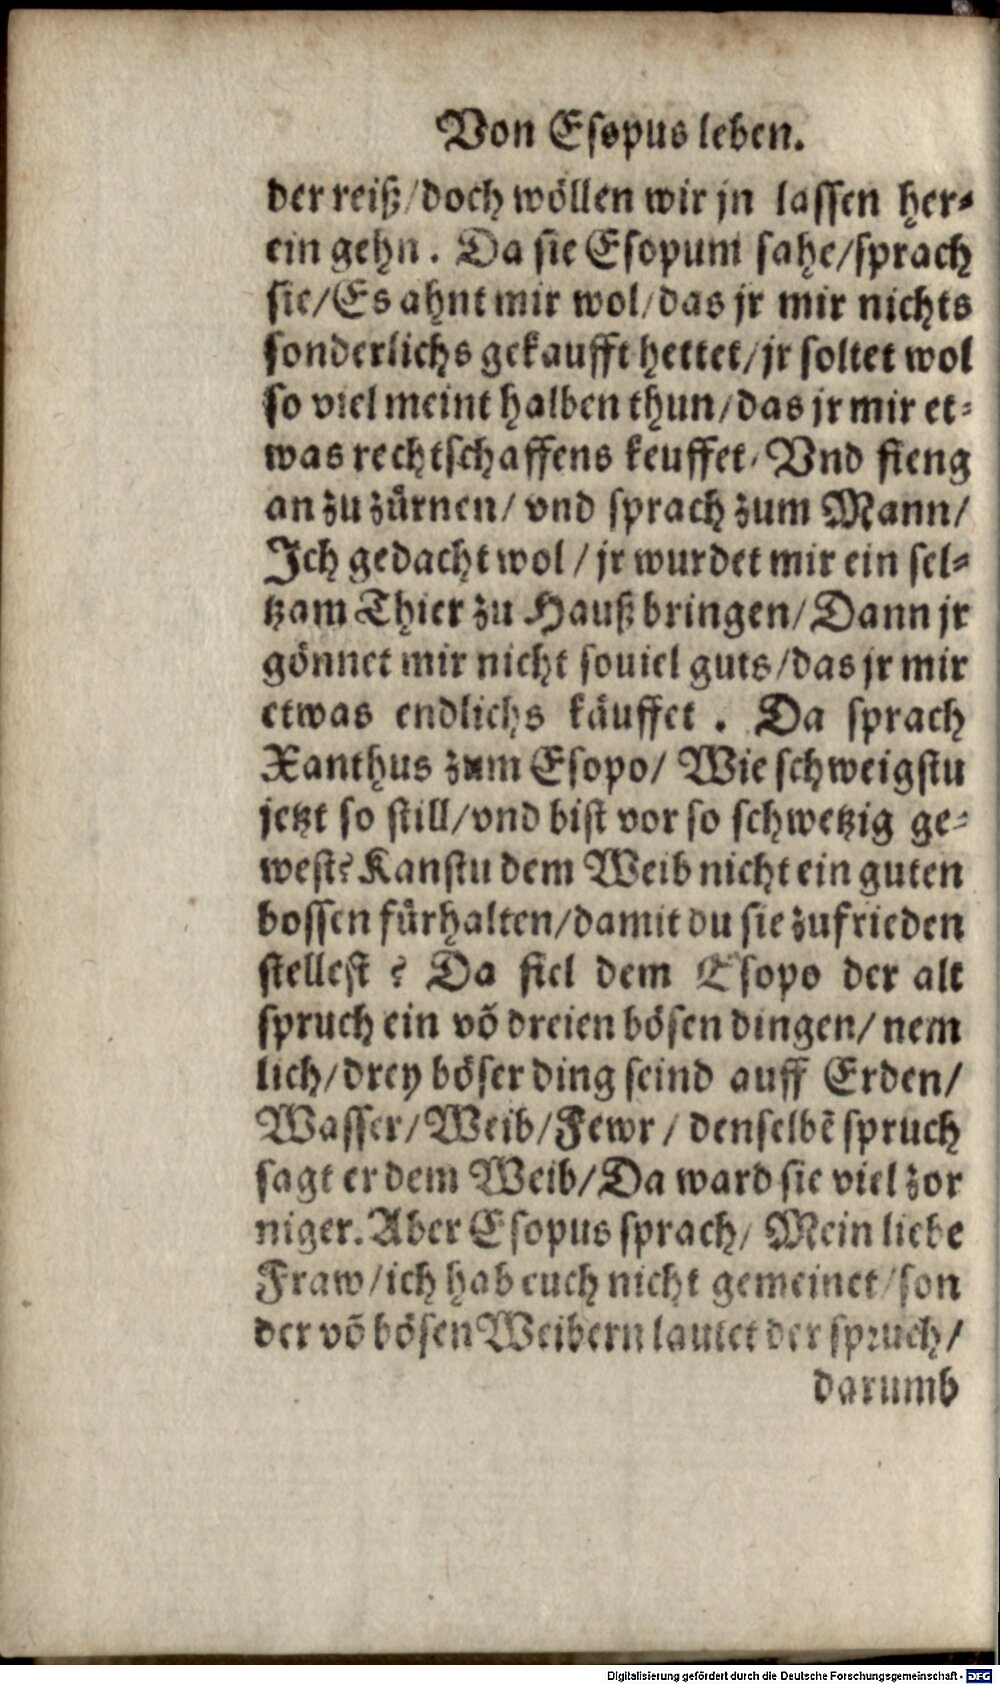 Von Esopus leben.
der reiß/doch wöllen wir jn lassen her⸗
ein gehn. Da sie Esopum sahe/sprach
sie/Es ahnt mir wol/das jr mir nichts
sonderlichs gekaufft hettet/jr soltet wol
so viel meint halben thun/das jr mir et⸗
was rechtschaffens keuffet/Vnd fieng
an zu zürnen/ vnd sprach zum Mann/
Ich gedacht wol/jr wurdet mir ein sel⸗
tzam Thier zu Hauß bringen/Dann jr
gönnet mir nicht souiel guts/das jr mir
etwas endlichs käuffet. Da sprach
Xanthus zum Esopo/ Wie schweigstu
jetzt so still/vnd bist vor so schwetzig ge⸗
west? Kanstu dem Weib nicht ein guten
bossen fürhalten/damit du sie zufrieden
stellest? Da fiel dem Esopo der alt
spruch ein võ dreien bösen dingen/nem
lich/drey böser ding seind auff Erden/
Wasser/Weib/Fewr/denselbẽ spruch
sagt er dem Weib/Da ward sie viel zor
niger. Aber Esopus sprach/ Mein liebe
Fraw/ich hab euch nicht gemeinet/son
der võ bösen Weibern lautet der spruch/
darumb
Digitalisierung gefördert durch die Deutsche Forschungsgemeinschaft - DFG